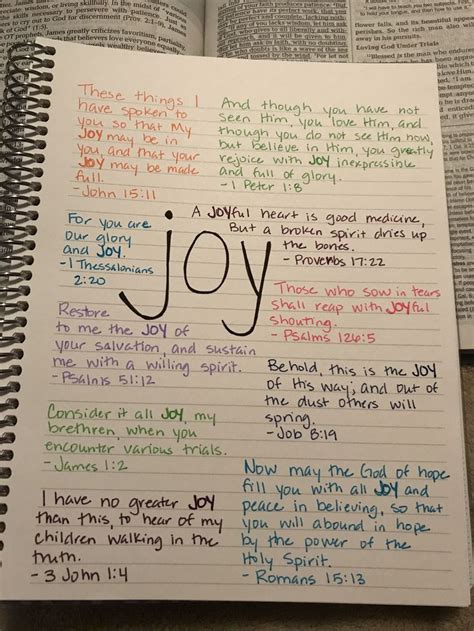 These things I
have spoken to
you so that My
JOY may be in
you, and that your
JOY may be made
full.
- John 15:11
And though you have not
seen Him, you love Him, and
though you do not see Him now,
but believe in Him, you greatly
rejoice with JOY inexpressible
and full of glory.
- 1 Peter 1:8
For you are
our glory
and JOY.
-1 Thessalonians
2:20
A JOYful heart is good medicine,
But a broken spirit dries up
the bones.
- Proverbs 17:22
joy
Those who sow in tears
shall reap with JOYful
shouting.
- Psalms 126:5
Restore
to me the JOY of
your salvation, and sustain
me with a willing spirit.
- Psalms 51:12
Behold, this is the JOY
of His way; and out of
the dust others will
spring.
- Job 8:19
Consider it all JOY, my
brethren, when you
encounter various trials.
- James 1:2
Now may the God of hope
fill you with all JOY and
peace in believing, so that
you will abound in hope
by the power of the
Holy Spirit.
- Romans 15:13
I have no greater JOY
than this, to hear of my
children walking in the
truth.
- 3 John 1:4
Loving God Under Trials